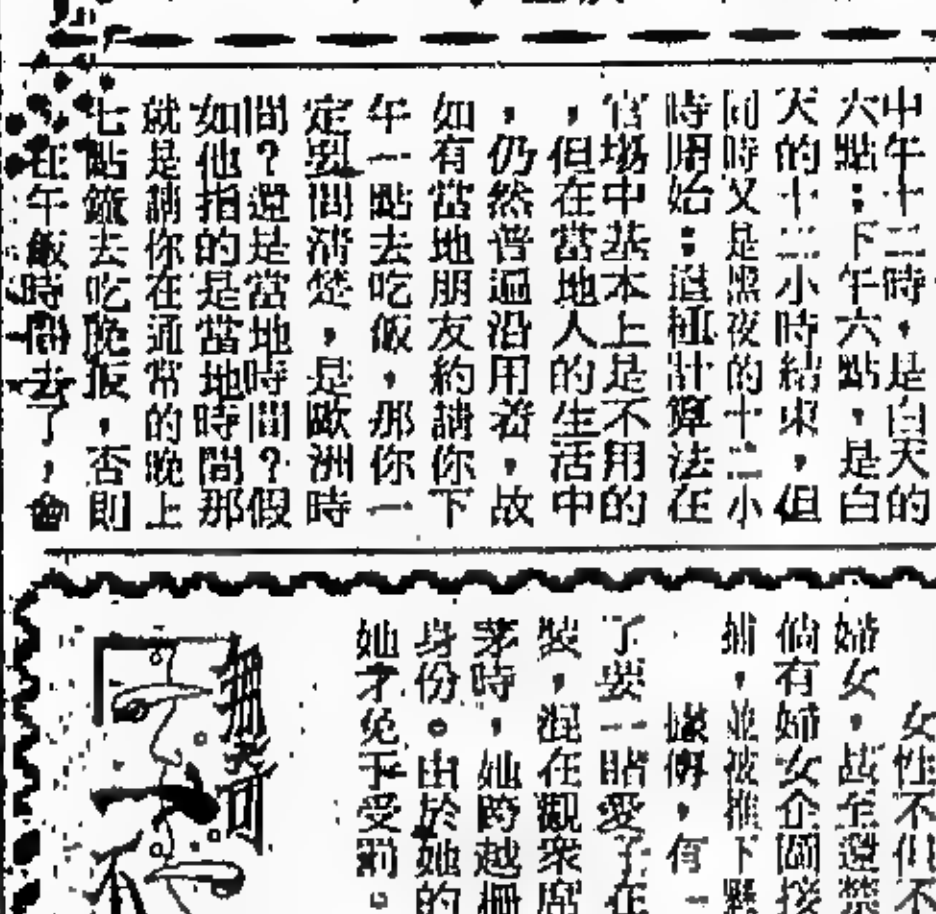 中午十二時，是白天的
六點；下午六點，是白
天的十二小時結束，但
同時又是黑夜的十二小
時開始；這種計算法在
官場中基本上是不用的
，但在當地人的生活中
，仍然普遍沿用着，故
如有當地朋友約請你下
午一點去吃飯，那你一
定要問清楚，是歐洲時
間？還是當地時間？假
如他指的是當地時間那
就是請你在通常的晚上
七點鐘去吃晚飯，否則
在午飯時間去了，會
女性不但不
婦女，甚至還禁
倘有婦女企圖接
捕，並被推下懸
據傳，有一
了要一睹愛子在
裝，混在觀衆席
茅時，她跨越柵
身份。由於她的
她才免于受罰。